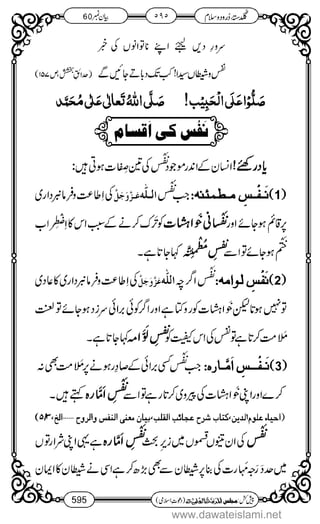 گلدستۂ درود و سلام ۵۹۵ بیان نمبر 60
سرورِ دیں لیجئے اپنے ناتوانوں کی خبر
نفس و شیطاں سیّدا! کب تک دباتے جائیں گے (حدائقِ بخشش، ص۱۵۷)
صَلُّوْا عَلَی الْحَبِیْب! صَلَّی اللہُ تَعَالٰی عَلٰی مُحَمَّد
نَفْس کی اَقسام
یاد رکھئے! انسان کے اندر موجود نَفْس کی تین صِفات ہوتی ہیں:
(1) نَفْسِ مطمئنه: جب نَفْس اللہ عَزَّوَجَلَّ کی اِطاعت اور فرمانبرداری
پر قائم ہو جائے اور نَفْسانی خَواہشات کو تَرک کرنے کے سبب اس کا اِضْطِراب
خَتْم ہو جائے تو اسے نفسِ مُطْمَئِنَّہ کہا جاتا ہے۔
(2) نَفْسِ لوامه: نفس اگرچہ اللہ عَزَّوَجَلَّ کی اطاعت و فرمانبرداری کا عادی
تو نہیں ہوتا لیکن خَواہشات کو روکتا ہے اور اگر کوئی برائی سرزد ہو جائے تو لعنت
مَلامَت کرتا ہے تو نفس کی اس کیفیت کو نفسِ لَوَّامہ کہا جاتا ہے۔
(3) نَفْسِ اَمَّاره: جب نَفْس کسی برائی کے صادِر ہونے پر مَلامَت بھی نہ
کرے اور اپنی خَواہشات کی پیروی کرتا رہے تو اسے نَفْسِ اَمَّارہ کہتے ہیں۔
(احیاء علوم الدین، کتاب شرح عجائب القلب، بیان معنی النفس والروح ۔۔۔الخ، ۵/۳)
نَفْس کی ان تینوں قسموں میں زیرِ بحث نَفْسِ اَمَّارہ ہے یہی اپنی شرارتوں
میں حد دَرَجہ مَہارت کی بنا پر شیطان سے بھی بڑھ کر ہے اسی نے شیطان کا ایمان
پیش کش: مجلس المدینۃ العلمیۃ (دعوتِ اسلامی) 595
www.dawateislami.net